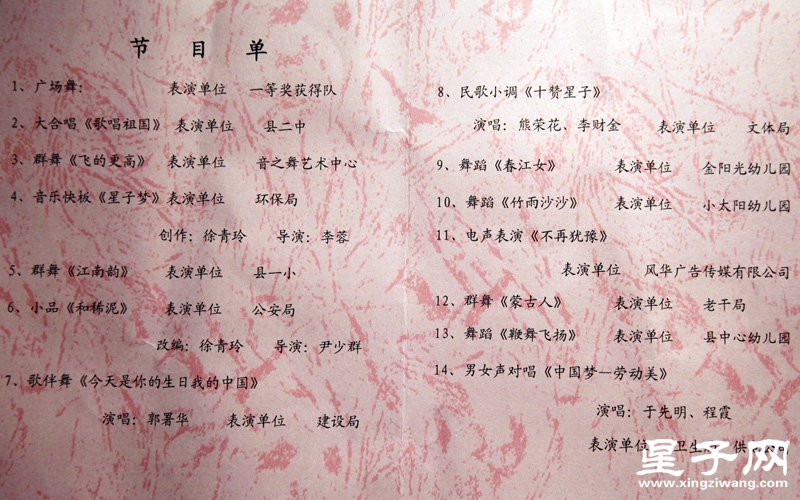 节 目 单
1、广场舞： 表演单位 一等奖获得队
2、大合唱《歌唱祖国》 表演单位 县二中
3、群舞《飞的更高》 表演单位 音之舞艺术中心
4、音乐快板《星子梦》表演单位 环保局
创作：徐青玲 导演：李蓉
5、群舞《江南韵》 表演单位 县一小
6、小品《和稀泥》 表演单位 公安局
改编：徐青玲 导演：尹少群
7、歌伴舞《今天是你的生日我的中国》
演唱：郭署华 表演单位 建设局
8、民歌小调《十赞星子》
演唱：熊荣花、李财金 表演单位 文体局
9、舞蹈《春江女》 表演单位 金阳光幼儿园
10、舞蹈《竹雨沙沙》 表演单位 小太阳幼儿园
11、电声表演《不再犹豫》
表演单位 风华广告传媒有限公司
12、群舞《蒙古人》 表演单位 老干局
13、舞蹈《鞭舞飞扬》 表演单位 县中心幼儿园
14、男女声对唱《中国梦—劳动美》
演唱：于先明、程霞
表演单位 卫生 供 公司
星子网
www.xingziwang.com